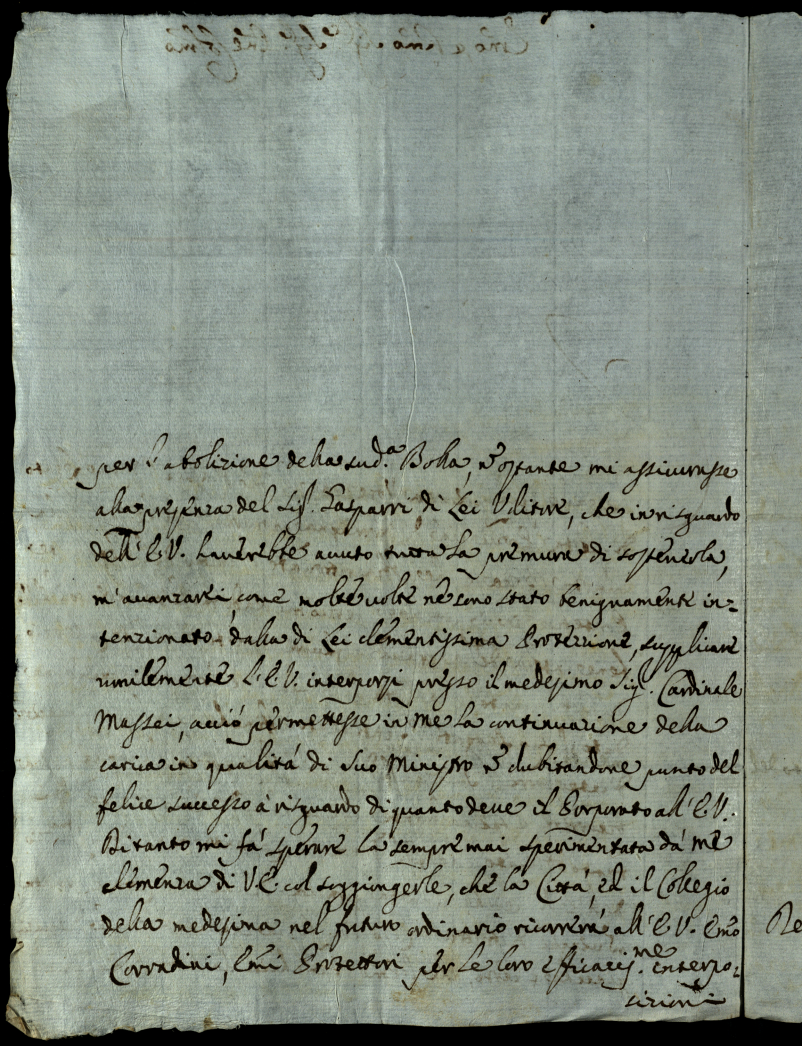 per l'abolizione della sud.a Bolla, nõ ostante mi assicurasse
alla presenza del Sig.r Gasparri di Lei Uditore, che in risguardo
dell'E.V. haverebbe avuto tutta la premura di sostenerla,
m'avanzarei, come molte volte nè sono stato benignamente in=
tenzionato dalla di Lei clementissima Protezzione, supplicare
umilemente l'E.V. interporsi presso il medesimo Sig.r Cardinale
Massei, acciò permettesse in me la continuazione della
carica in qualità di Suo Ministro nõ dubitandone punto del
felice successo à risguardo di quanto deve il Porporato all'E.V.
Di tanto mi fà sperare la sempre mai sperimentata dà me
clemenza di V.E. col soggiongerle, che la Città, ed il Collegio
della medesima nel futuro ordinario ricorrerà all'E.V. Emo
Corradini, Emi Protettori per le loro efficacis.me interpo=
sizioni
Re